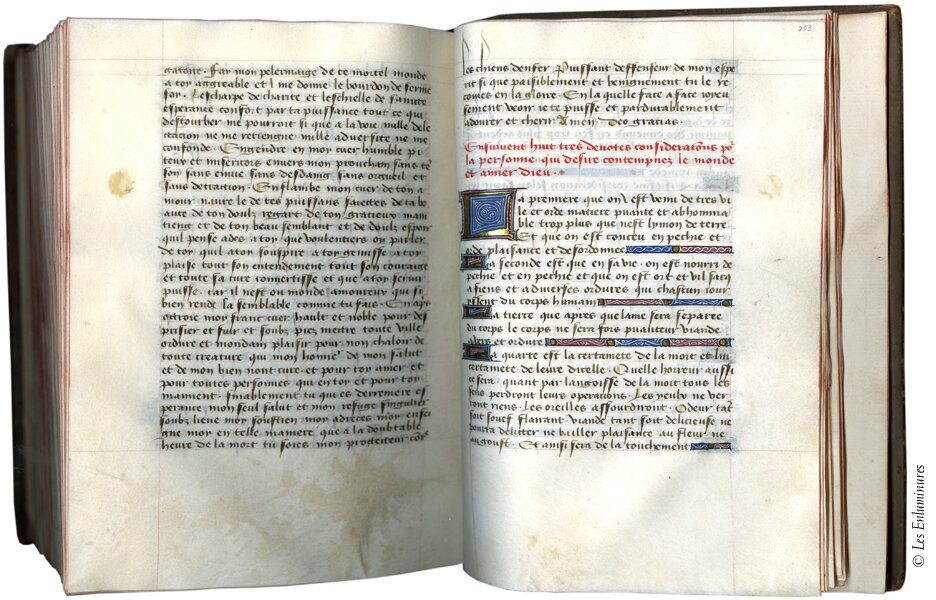 garoit. Fay mon pelerinaige de ce mortel monde
a toy aggreable et me donne le bourdon de ferme
foy. Lescharpe de charite et leschielle de saincte
esperance confort par ta puissance tout ce qui
destourber me pourroit si que a la voie nulle dele
ctation ne me retiengne nulle adversite ne me
confonde. Engendre en moy cuer humble pi
teux et misericors envers mon prouchain sans te
son sans envie sans desdaing sans orgueil et
sans detraction. Enflambe mon cuer de ton a
mour navre le de tes puissans saiectes de ta be
aute de ton doulx regart de ton gracieux main
tieng et de ton beau semblant et de doulx espoir
quil pense a toy que voulentiers oii parler
de toy quil a toy souspire a toy gemisse a toy
plaise tout son entendement tout son couraige
et toute sa cure convertisse et que a toy servir
puisse. car il nest ou monde amoureux qui si
bien rende la semblable comme tu fais. En
mon franc cuer hault et noble pour des
prisier et fuir et soubz piez mettre toute ville
ordure et mondain plaisir pour non chaloir de
toute creature qui mon honneur de mon salut
et de mon bien nont cure. et pour toy amer et
pour toutes personnes qui en toy et pour toy
maiment. finablement tu qui es derreniere es
perance mon seul salut et mon refuge singulier
soubz lieve moy soustien moy adresce moy ensei
gne moy en telle maniere que a la doubtable
heure de la mort tu soies mon protecteur
253
les chiens denfer Puissant deffenseur de mon espe
rit si que paisiblement et benignement tu le re
coives en ta gloire. En la quelle face a face ioyeu
sement veoir ie te puisse et pardurablement
adourer et cherir Amen Deo gracias.
Ensuivent huit tres devotes consideracons po
la personne qui desire contempnez le monde
et amer dieu.
La premiere que on est venu de tres vi
le et orde matiere puante et abhomina
ble trop plus que nest lymon de terre
Et que on est conceu en pechie et
orde plaisance et desordonnee
La seconde est que en sa vie. on est nourri de
pechie et en pechie et que on est ort et vil sacq
a fiens et a diverses ordures qui chascun iour
yssent du corps humain
La tierce que apres que lame sera separee
du corps le corps ne sera fors puanteur viande
a vers et ordure
La quarte est la certainete de la mort et lin
certainete de leure dicelle. Quelle horreur ausse
ce sera. quant par langoisse de la mort tous les
sens perdront leurs operations. Les yeulx ne ver
ront riens. Les oreilles assourdiront. Odeur tat
soit souef flairant viande tant soit delicieuse ne
pourra deliter ne bailler plaisance au fleur ne
au goust. Et ainsi sera de la touchement
© Les Enluminures